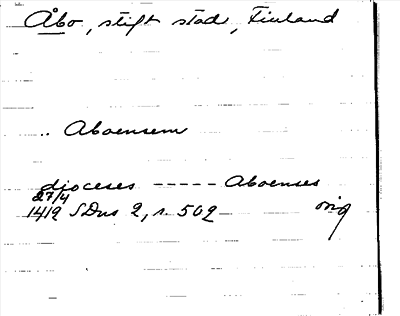 Åbo, stift stad, Finland
.. Aboensem
dioceses ----- Aboenses
27/4
1419 SDns 2, s. 502 orig